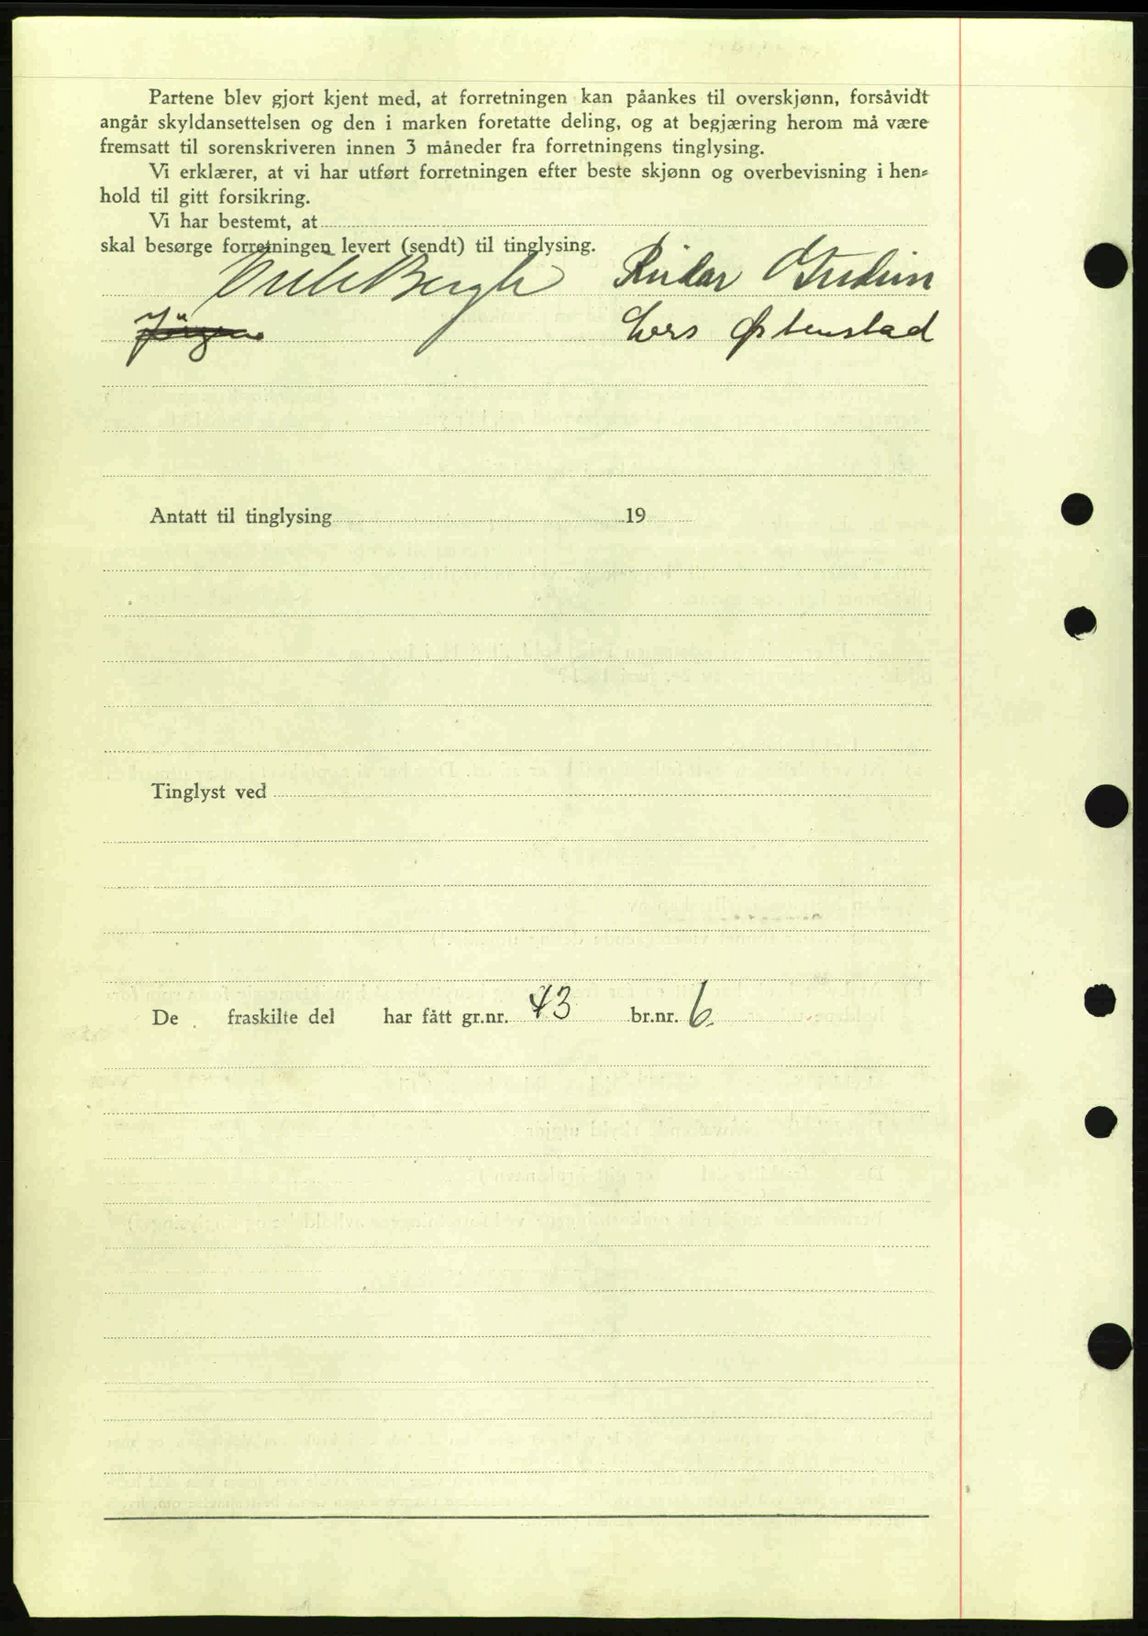 Partene blev gjort kjent med, at forretningen kan påankes til overskjønn, forsåvidt
angår skyldansettelsen og den i marken foretatte deling, og at begjæring herom må være
fremsatt til sorenskriveren innen 3 måneder fra forretningens tinglysing.
Vi erklærer, at vi har utført forretningen efter beste skjønn og overbevisning i hen-
hold til gitt forsikring.
Vi har bestemt, at
skal besørge forretningen levert (sendt) til tinglysing.
Reidar
Jørgen Lars Østenstad
Antatt til tinglysing 19
Tinglyst ved
De fraskilte del har fått gr.nr. 43 br.nr. 6.